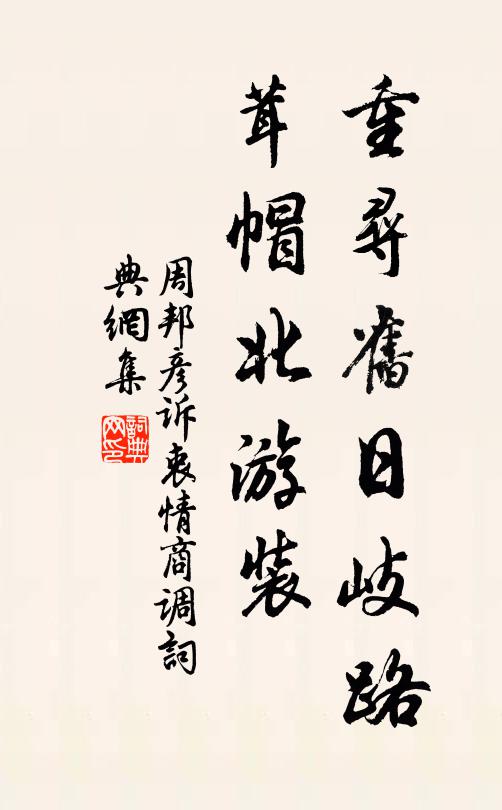 重尋舊日歧路
茸帽北游裝
周邦彦诉衷情商调詞
典網集
詞典網印